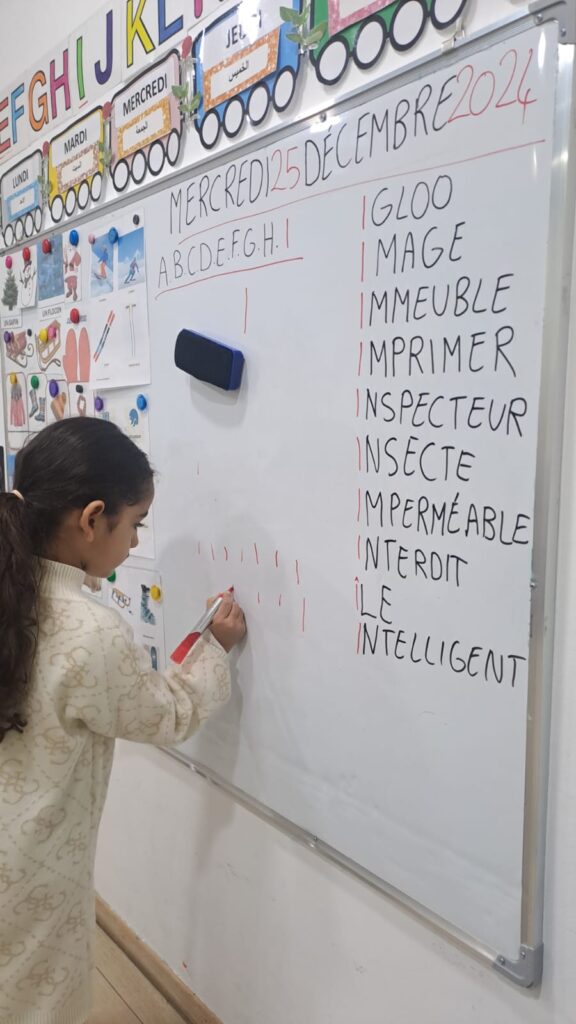 EFGHIJKL
LUNDI
الأحد
MARDI
السبت
MERCREDI
الجمعة
JEUDI
الخميس
MERCREDI 25 DÉCEMBRE 2024
A.B.C.D.E.F.G.H.I
I
IGLOO
IMAGE
IMMEUBLE
IMPRIMER
INSPECTEUR
INSECTE
IMPERMÉABLE
INTERDIT
ÎLE
INTELLIGENT
UN SAPIN
UN FLOCON